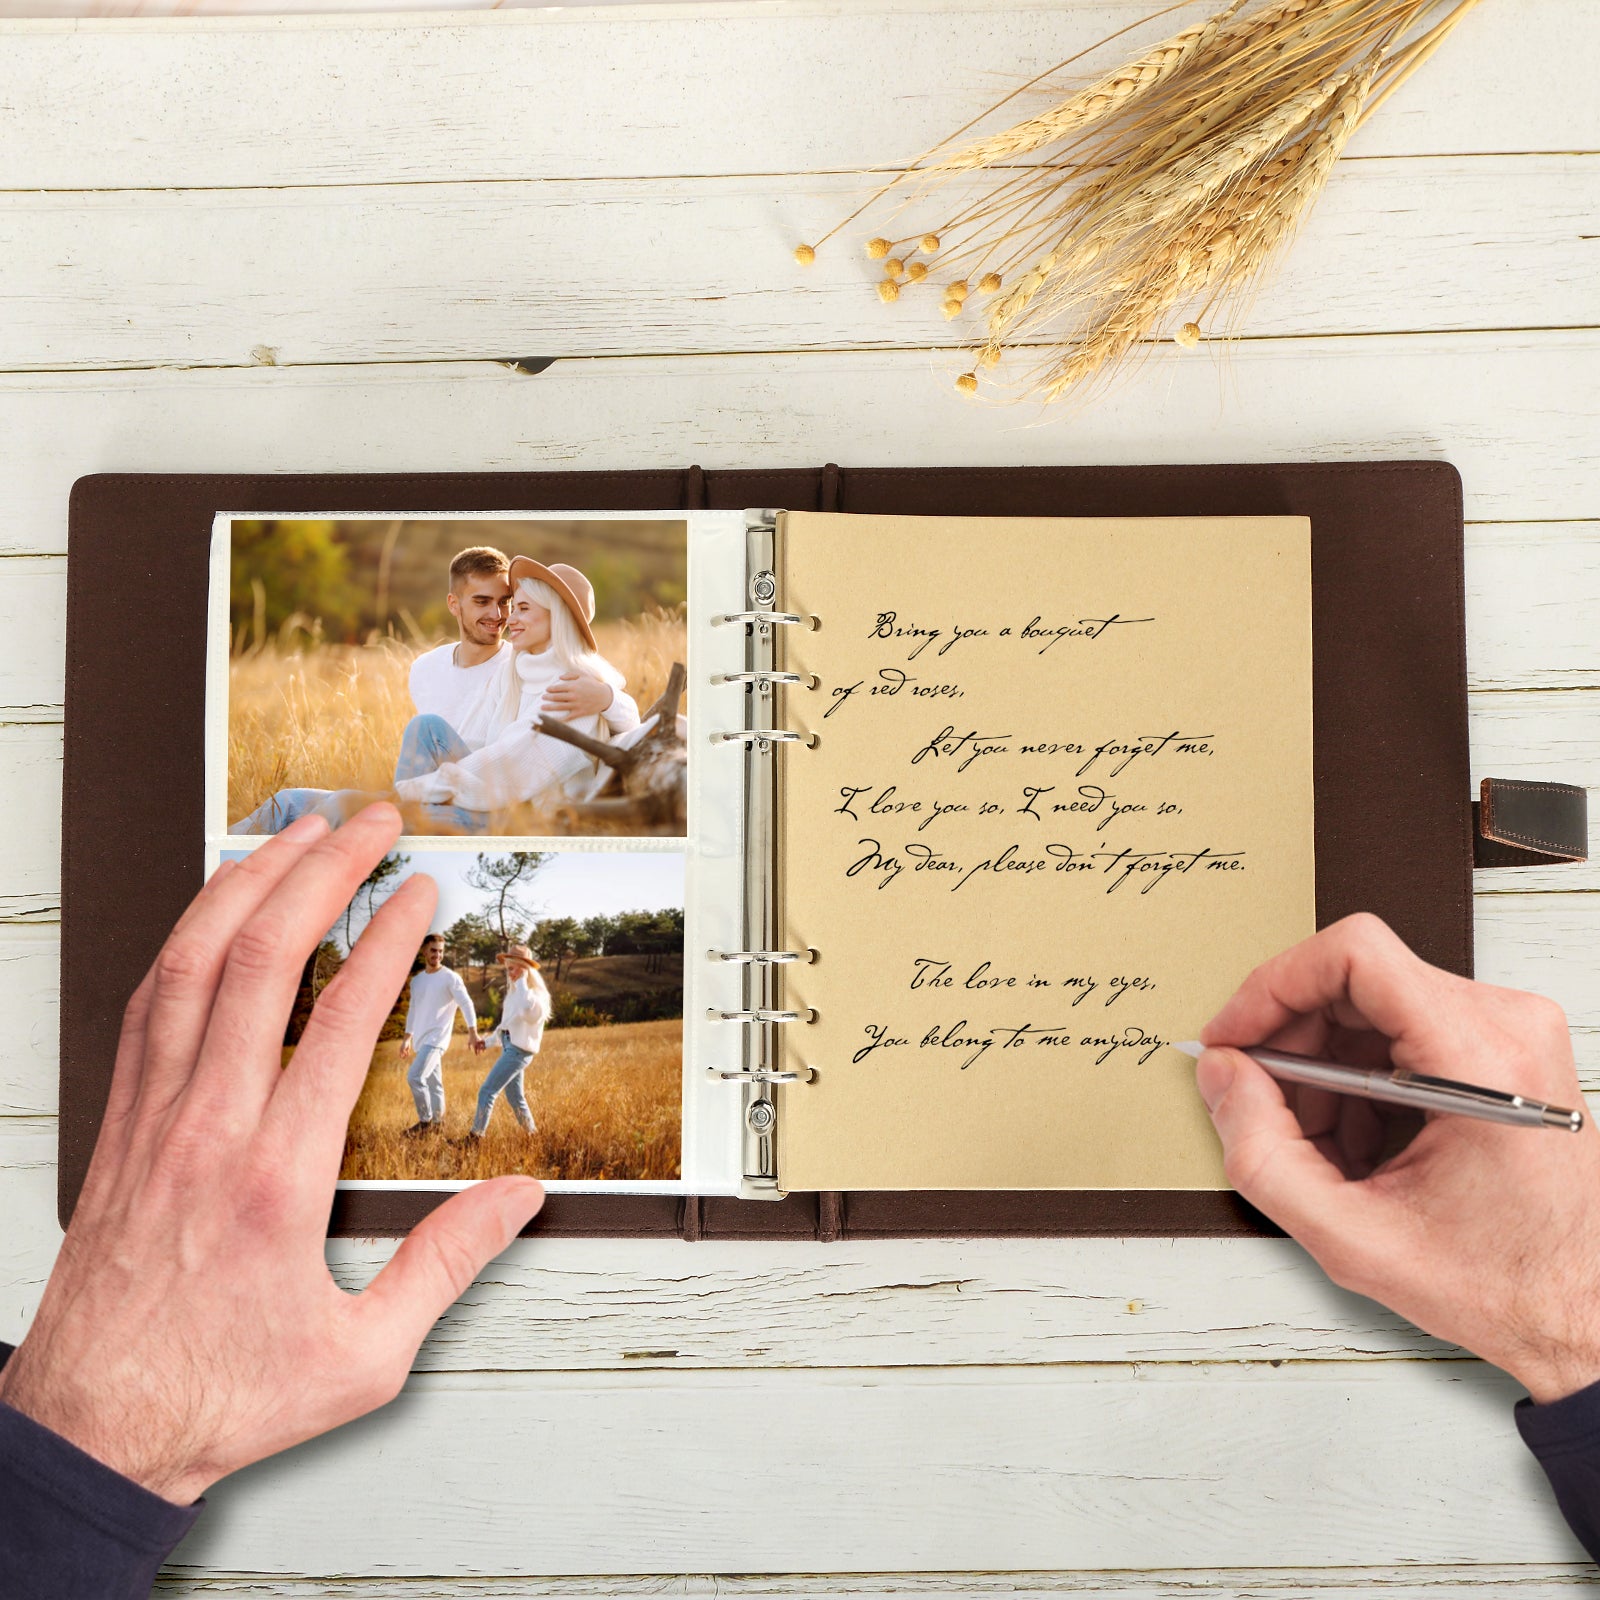 Bring you a bouquet
of red roses,
Let you never forget me,
I love you so, I need you so,
My dear, please don't forget me.
The love in my eyes,
You belong to me anyway.